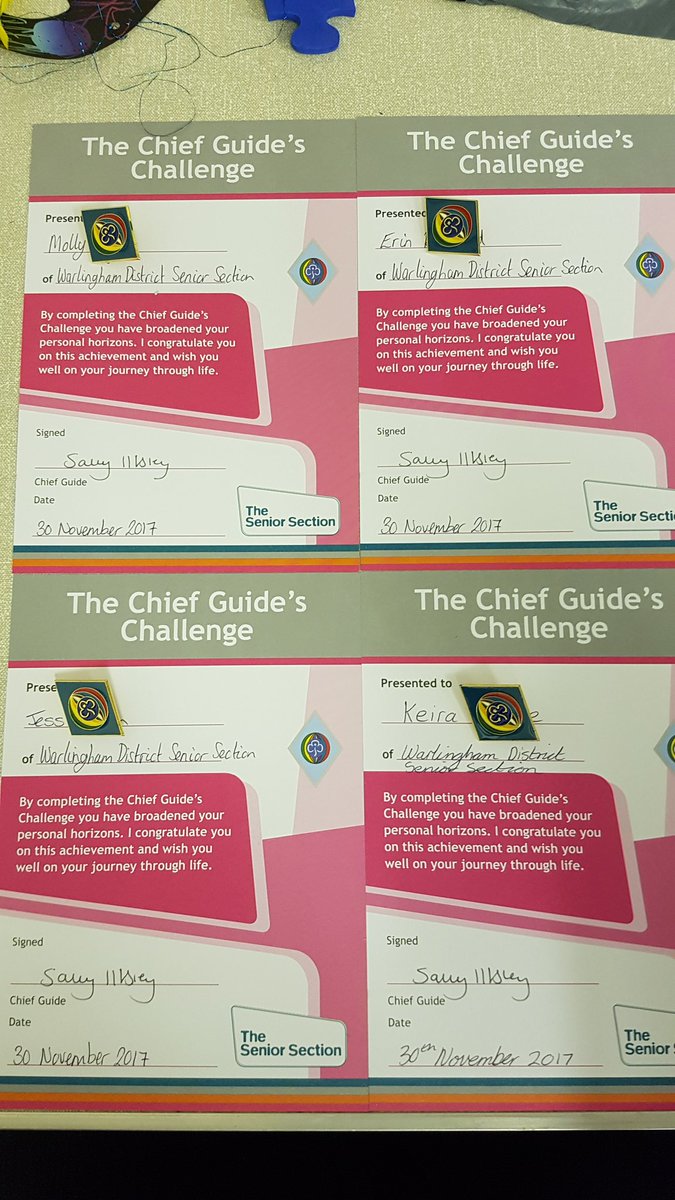 The Chief Guide's
Challenge
Presen
Molly
of Warlingham District Senior Section
By completing the Chief Guide's
Challenge you have broadened your
personal horizons. I congratulate you
on this achievement and wish you
well on your journey through life.
Signed
Sally Illsley
Chief Guide
Date
30 November 2017
The
Senior Section
The Chief Guide's
Challenge
Presented
Erin
of Warlingham District Senior Section
By completing the Chief Guide's
Challenge you have broadened your
personal horizons. I congratulate you
on this achievement and wish you
well on your journey through life.
Signed
Sally Illsley
Chief Guide
Date
30 November 2017
The
Senior Secti
The Chief Guide's
Challenge
Prese
Jess
of Warlingham District Senior Section
By completing the Chief Guide's
Challenge you have broadened your
personal horizons. I congratulate you
on this achievement and wish you
well on your journey through life.
Signed
Sally Illsley
Chief Guide
Date
30 November 2017
The
Senior Section
The Chief Guide's
Challenge
Presented to
Keira e
of Warlingham District
Senior Section
By completing the Chief Guide's
Challenge you have broadened your
personal horizons. I congratulate you
on this achievement and wish you
well on your journey through life.
Signed
Sally Illsley
Chief Guide
Date
30th November 2017
The
Senior